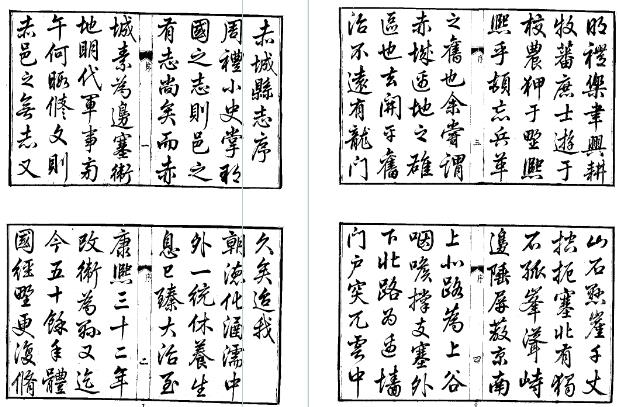 赤城縣志序
周禮小史掌邦
國之志則邑之
有志尚矣而赤
序
一
城素為邊塞衛
地明代軍事旁
午何暇修文則
赤邑之無志又
久矣迨我
朝德化涵濡中
外一統休養生
息已臻大治至
序
二
康熙三十二年
改衛為縣又迄
今五十餘年體
國經野更復脩
明禮樂聿興耕
牧蕃庶士遊于
校農狎于野熙
熙乎頓忘兵革
序
三
之舊也余嘗謂
赤城邊地之雄
區也去開平舊
治不遠有龍門
山石懸崖千丈
控扼塞北有獨
石孤峯聳峙
邊陲屏蔽京南
序
四
上北路為上谷
咽喉撐支塞外
下北路為邊墻
门户突兀雲中